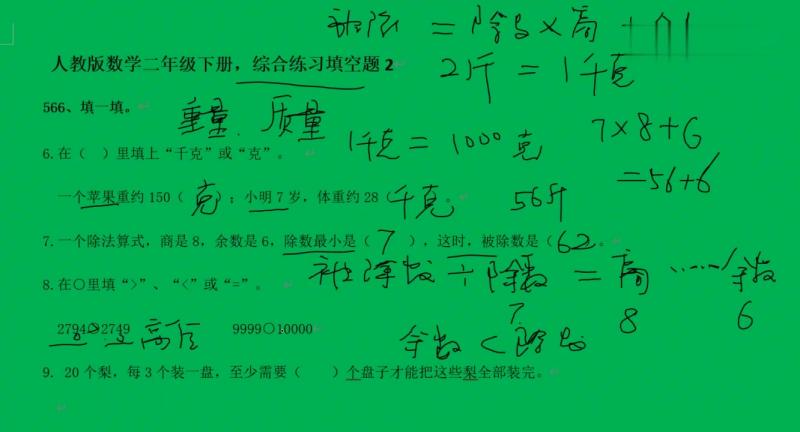 被除 = 除数×商+
人教版数学二年级下册，综合练习填空题2
2斤 = 1千克
566、填一填。
重量、质量
1千克 = 1000克
7×8+6
6.在（ ）里填上“千克”或“克”。
=56+6
一个苹果重约150（克；小明7岁，体重约28（千克。
56斤
7.一个除法算式，商是8，余数是6，除数最小是（7），这时，被除数是（62。
被除数÷除数 = 商……余数
7 8 6
8.在○里填“>”、“<”或“=”。
2794>2749 9999○10000
高位
余数<除数
9. 20个梨，每3个装一盘，至少需要（ ）个盘子才能把这些梨全部装完。